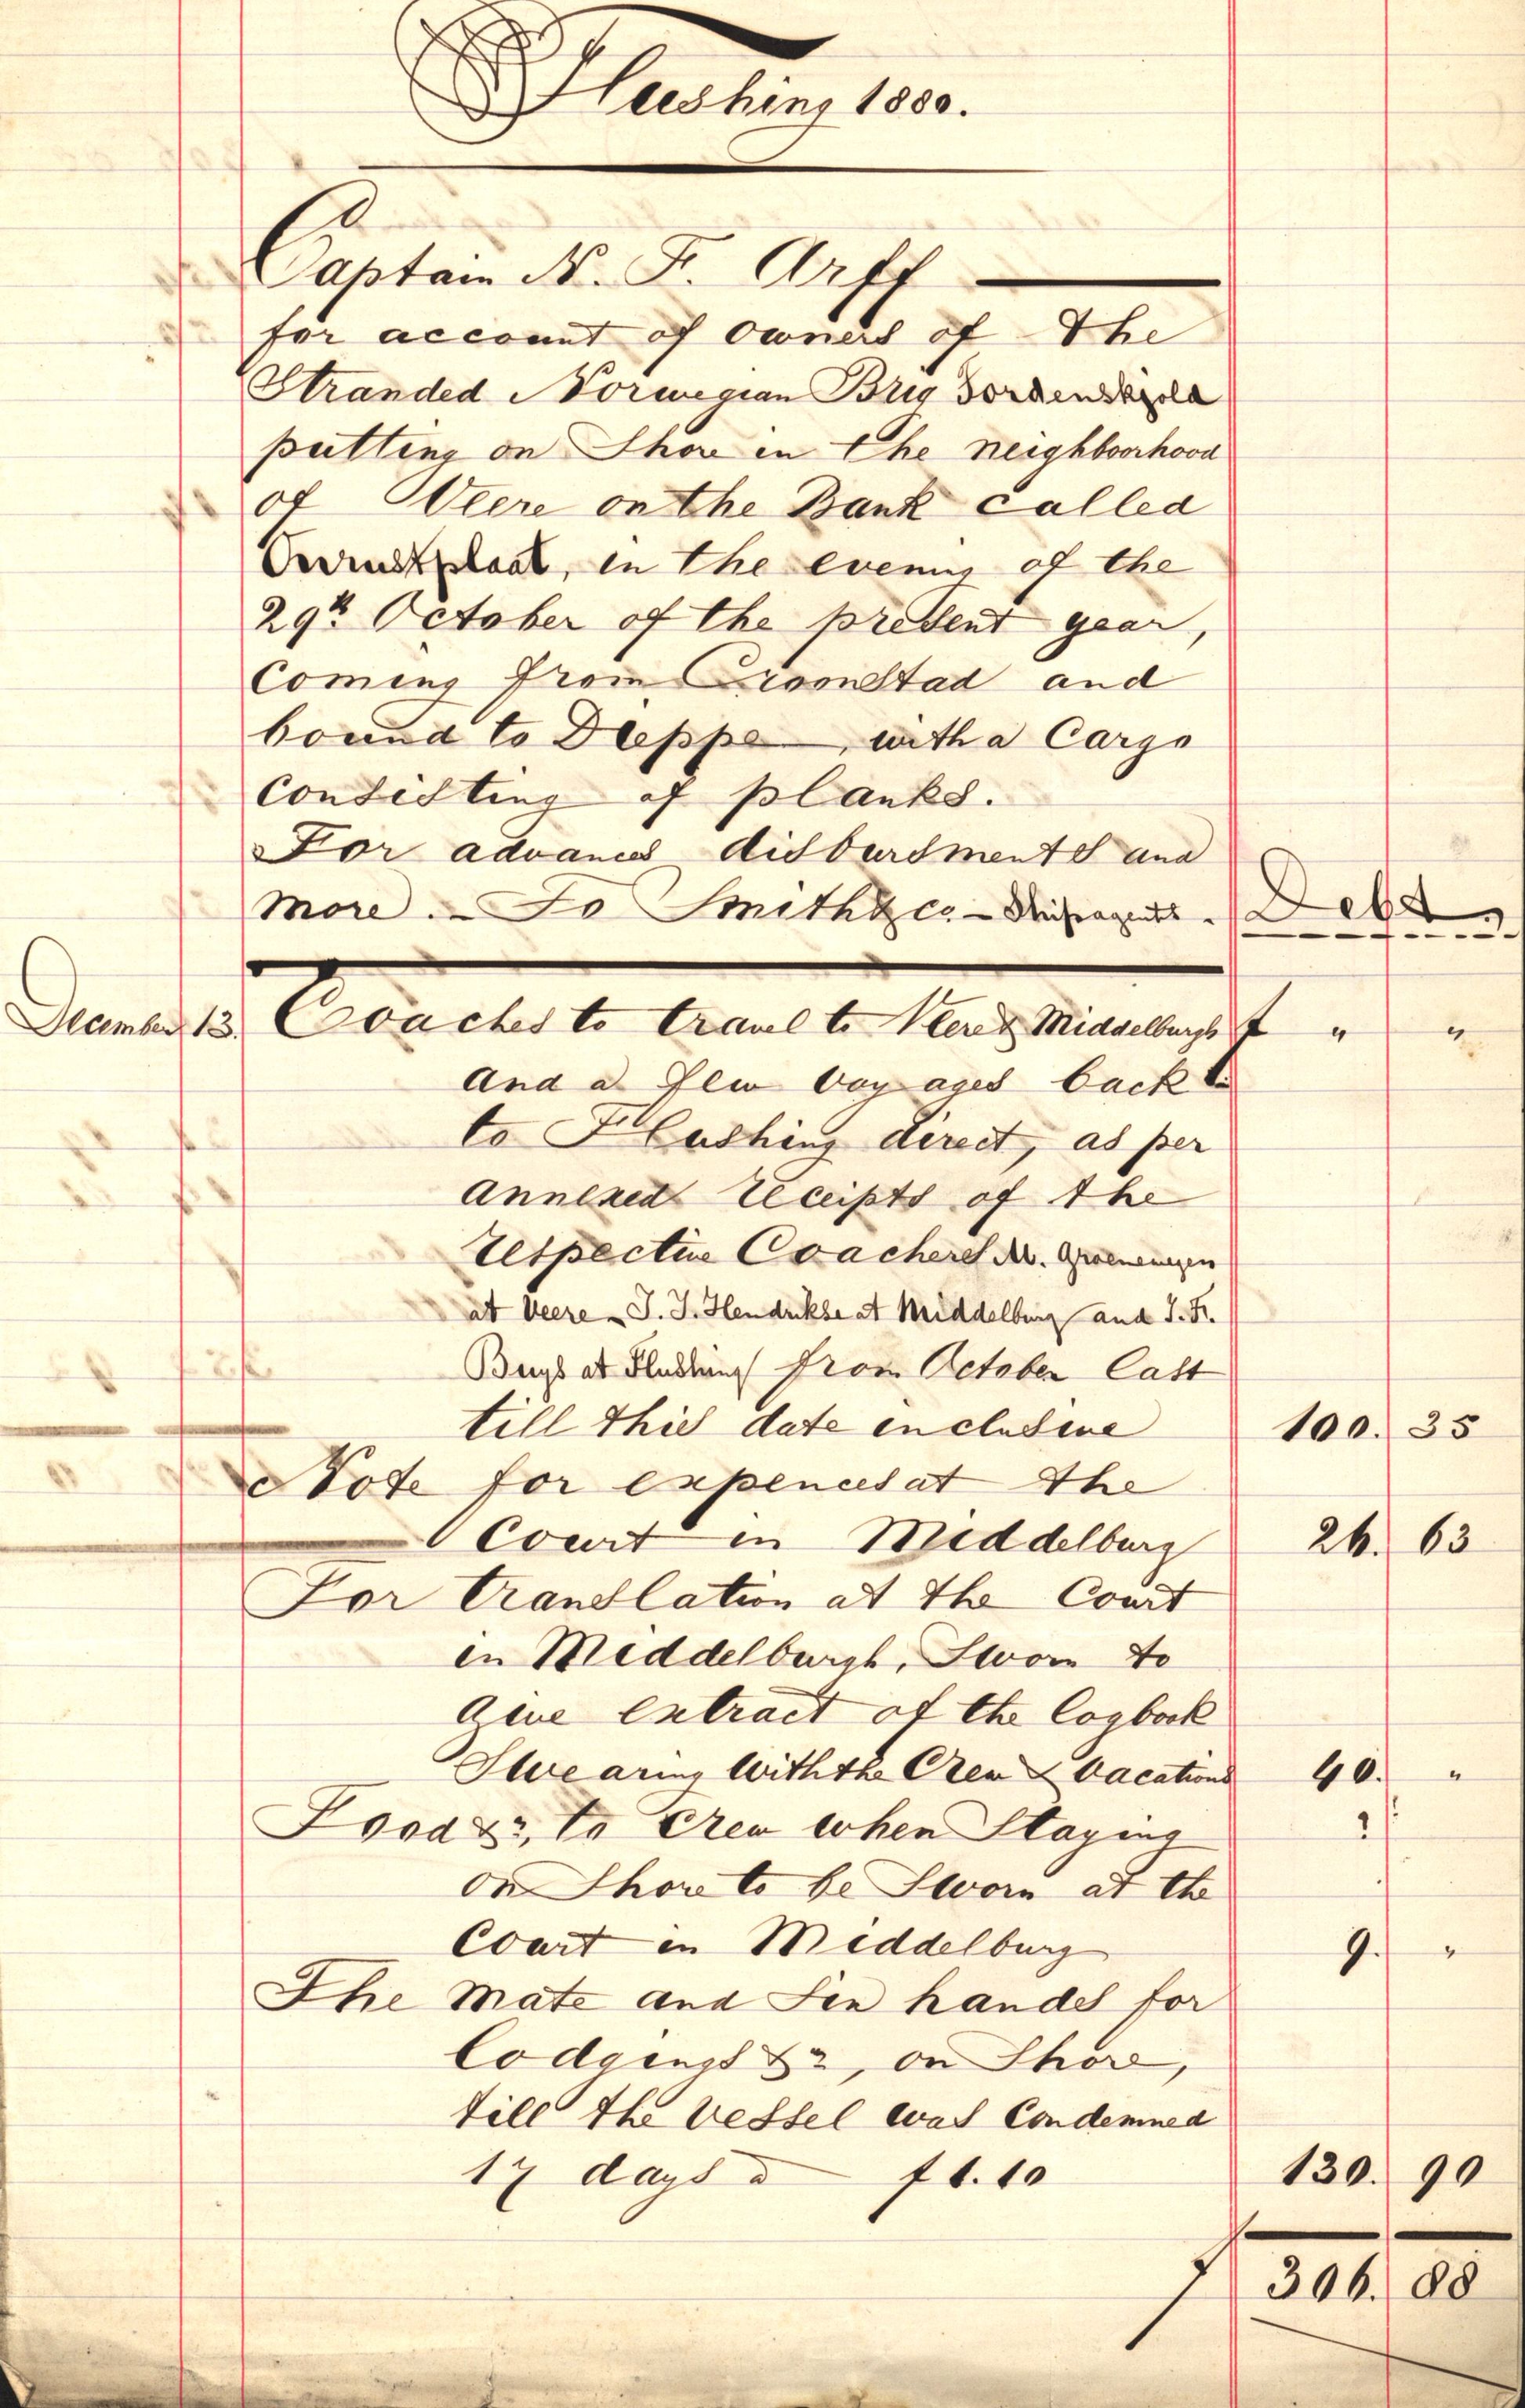 Flushing 1880.
Captain N. F. Arff
for account of Owners of the
Stranded Norwegian Brig
putting on Shore in the neighboorhood
of Veere on the Bank called
in the evening of the
29th October of the present year,
Coming from Croonstad and
bound to Dieppe, with a Cargo
Consisting of planks.
For advances disbursments and
more. - To Smith & Co - Shipagents. Debt,
December 13. Coaches to travel to Veere & Middelburgh f " "
and a few voyages back to
to Flushing direct, as per
annexed receipts of the
respective Coachers Mr. Groenewegen
at Veere - J. J. Hendrikse at Middelburg and J. Fr.
Buys at Flushing from October last
till this date inclusive 100. 35
Note for expences at the
Court in Middelburg 26. 63
For translation at the Court
in Middelburgh, Sworn to
give extract of the logbook
Swearing with the Crew & vacations 40. "
Food &c, to Crew when Staying
on Shore to be Sworn at the
Court in Middelburg 9. "
The Mate and Six hands for
lodgings &c, on Shore,
till the vessel was Condemned
17 days a f 1.10 130. 90
f 306. 88